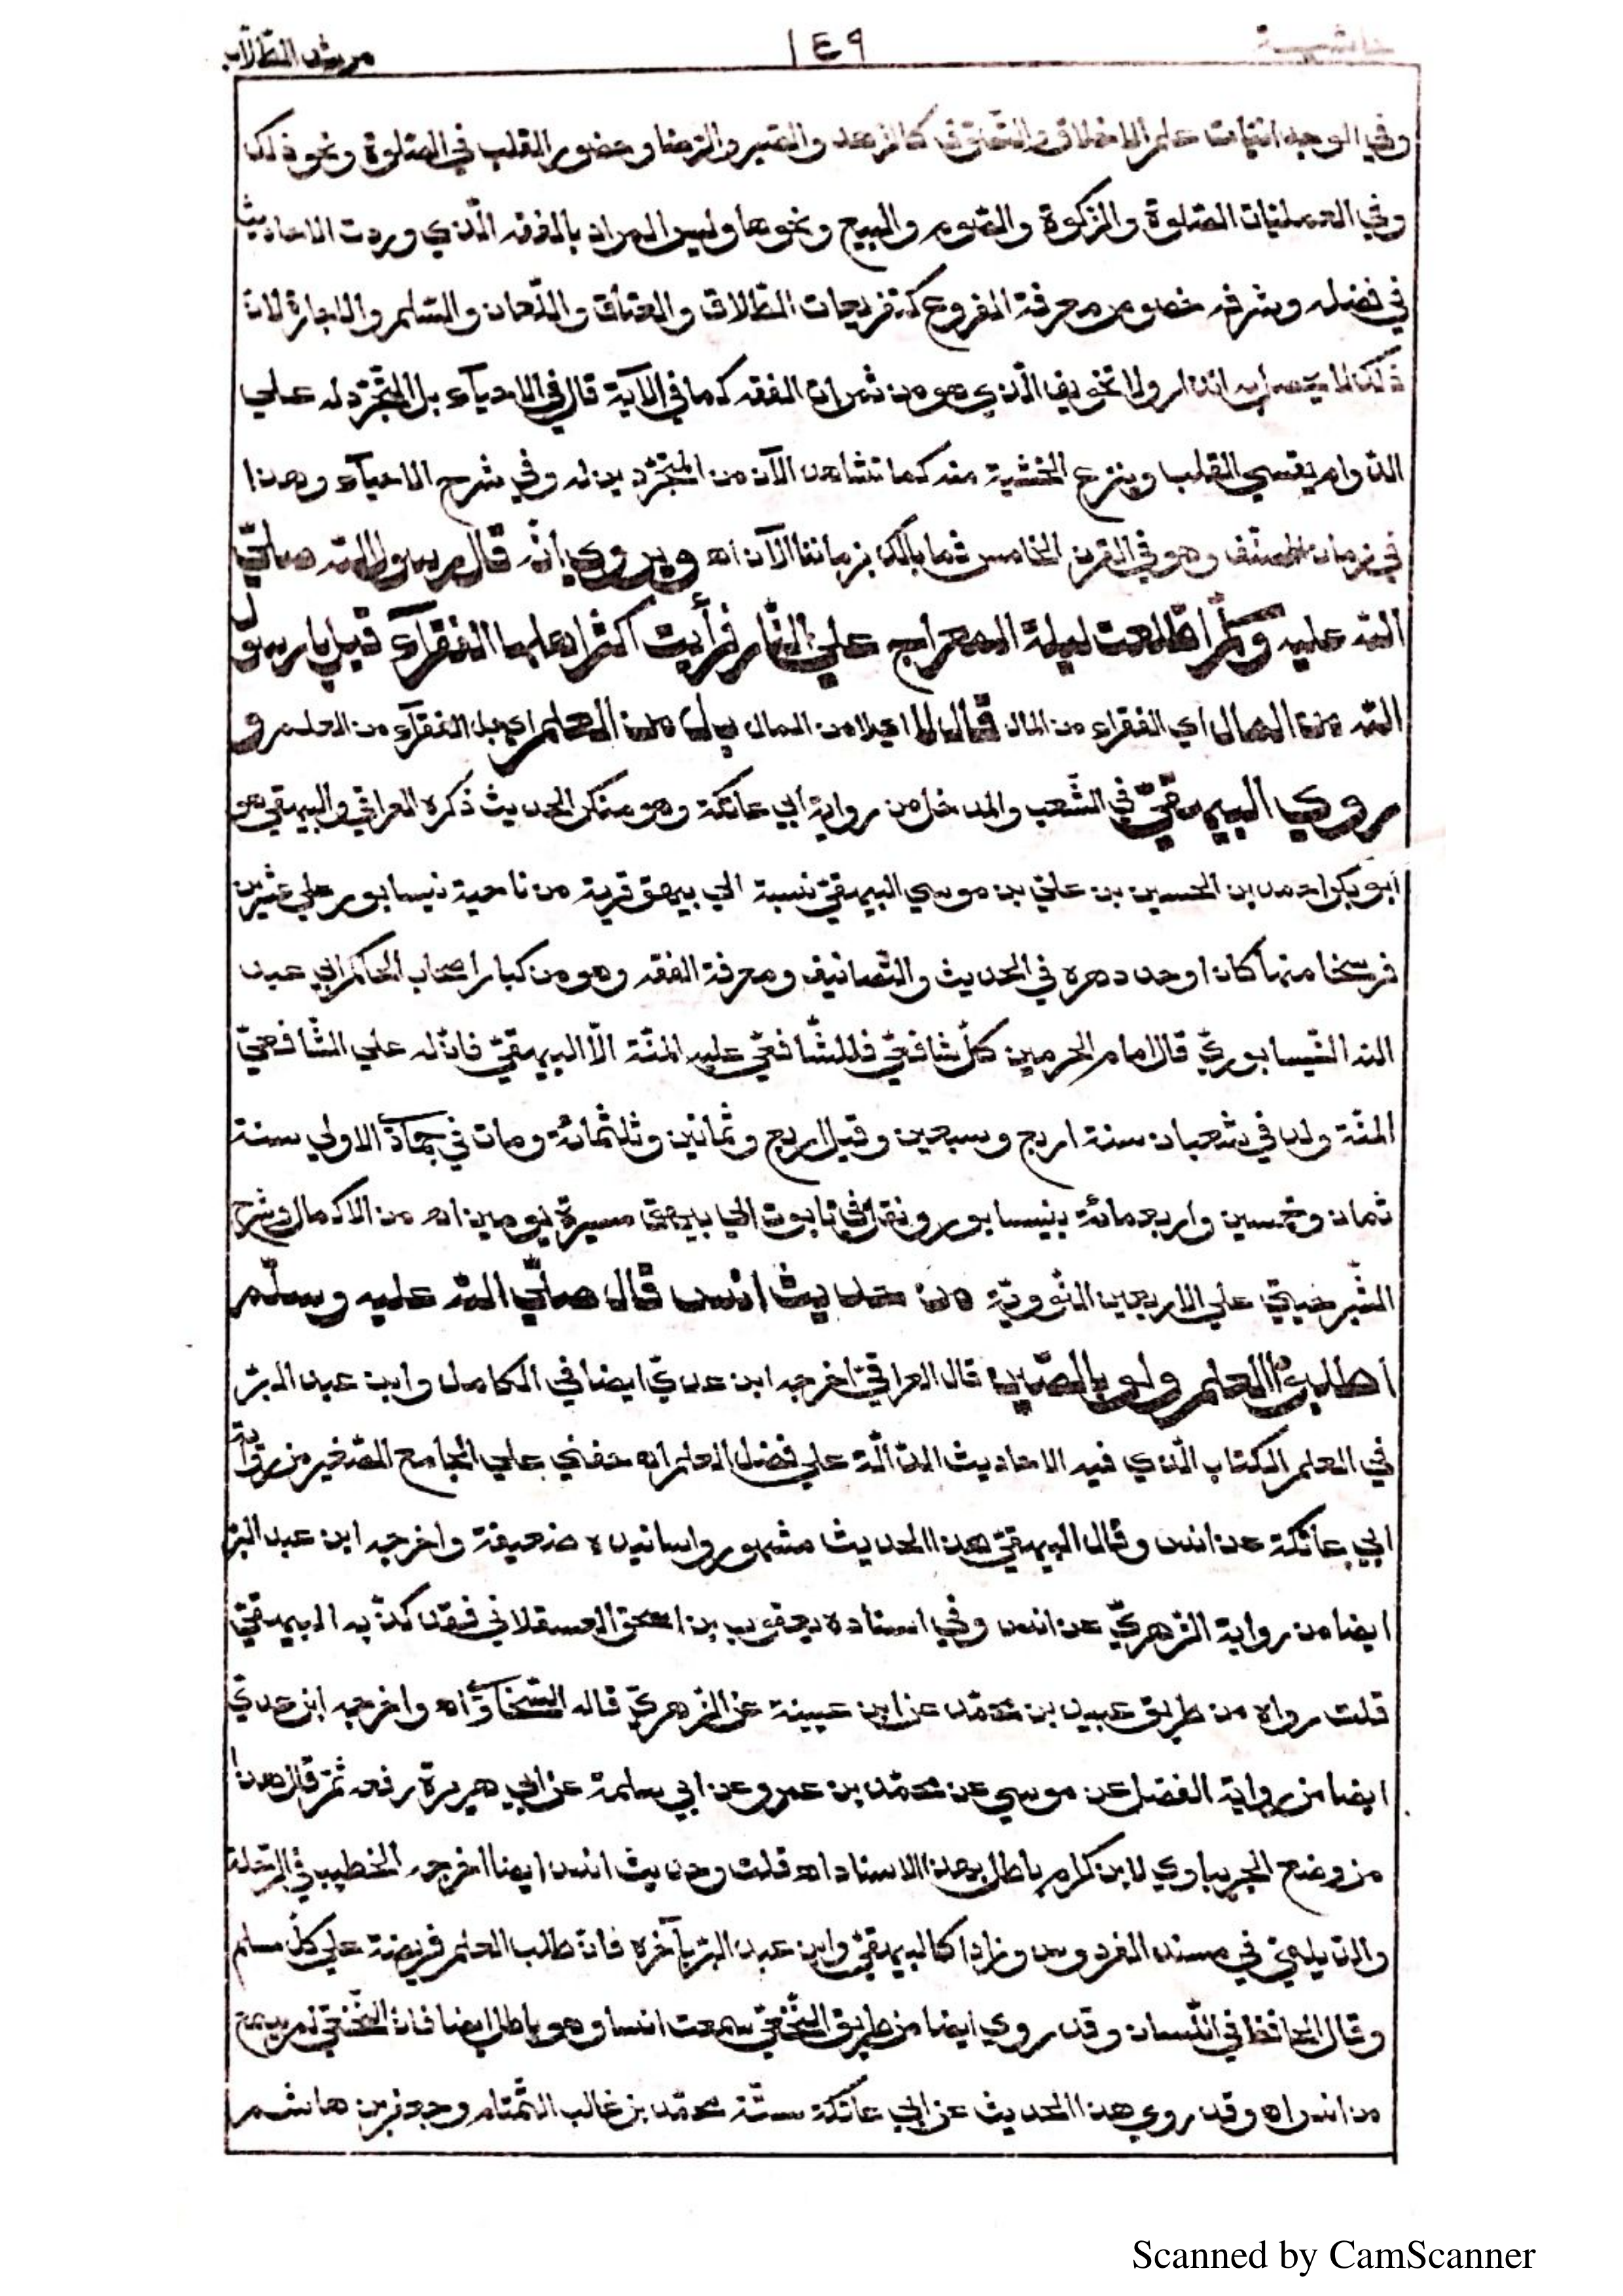 حاشية ١٤٩ مرشد الطّلّاب
وفي الوجدانيّات علم الاخلاق والتّصوّف كالزهد والصّبر والرّضا وحضور القلب في الصّلوة ونحو ذلك
وفي العمليّات الصّلوة والزّكوة والصّوم والبيع ونحوها وليس المراد بالفقه الّذي وردت الاحاديث
في فضله وشرفه خصوص معرفة الفروع كتفريعات الطّلاق والعتاق واللّعان والسّلم والاجارة لانّ
ذلك لا يحصل به انذار ولا تخويف الّذي هو من ثمرات الفقه كما في الآية قال في الاحيآء بل التّجرّد له علي
الدّوام يقسي القلب وينزع الخشية منه كما نشاهد الآن من المتجرّدين له وفي شرح الاحيآء وهذا
في زمان المصنّف وهو في القرن الخامس فما بالك بزماننا الآن اه ويروي أنّه قال رسول اللّه صلّي
اللّه عليه وسلّم اطّلعت ليلة المعراج علي النّار فرأيت اكثر اهلها الفقرآء قيل يا رسول
اللّه من المال أي الفقراء من المال قال لا اي لا من المال بل من العلم اي بل الفقرآء من العلم و
روي البيهقيّ في الشّعب والمدخل من رواية أبي عاتكة وهو منكر الحديث ذكره العراقي والبيهقي هو
أبو بكر احمد بن الحسين بن عليّ بن موسي البيهقيّ نسبة الي بيهق قرية من ناحية نيسابور علي عشرين
فرسخا منها كان اوحد دهره في الحديث والتّصانيف ومعرفة الفقه وهو من كبار اصحاب الحاكم ابي عبد
اللّه النّيسابوريّ قال امام الحرمين كلّ شافعيّ فللشّافعيّ عليه المنّة الّا البيهقيّ فانّ له علي الشّافعيّ
المنّة ولد في شعبان سنة اربع وسبعين وقيل اربع وثمانين وثلثمائة ومات في جمادي الاولي سنة
ثمان وخمسين واربعمائة بنيسابور ونقل في تابوت الي بيهق مسيرة يومين اه من الاكمال وشرح
الشّبرخيتيّ علي الاربعين النّوويّة من حديث انس قال صلّي اللّه عليه وسلّم
أطلبوا العلم ولو بالصّين قال العراقيّ اخرجه ابن عديّ ايضا في الكامل وابن عبد البرّ
في العلم الكتاب الّذي فيه الاحاديث الدّالّة علي فضل العلم اه حفني علي الجامع الصّغير من رواية
ابي عاتكة عن انس وقال البيهقيّ هذا الحديث مشهور واسانيده ضعيفة واخرجه ابن عبد البرّ
ايضا من رواية الزّهريّ عن انس وفي اسناده يعقوب بن اسحق العسقلاني فقد كذّبه البيهقيّ
قلت رواه من طريق عبيد بن محمّد عن ابن عيينة عن الزهريّ قاله السّخاويّ اه واخرجه ابن عديّ
ايضا من رواية الفضل عن موسي عن محمّد بن عمرو عن ابي سلمة عن ابي هريرة رفعه ثمّ قال هذا
من وضع الجويباوي لابن كرام باطل بهذا الاسناد اه قلت وحديث انس ايضا اخرجه الخطيب في الرّحلة
والدّيلميّ في مسند الفردوس وزادا كالبيهقيّ وابن عبد البرّ بآخره فانّ طلب العلم فريضة علي كلّ مسلم
وقال الحافظ في اللّسان وقد روي ايضا من طريق النّخعيّ سمعت انسا وهو باطل ايضا فانّ النّخعيّ لم يسمع
من انس اه وقد روي هذا الحديث عن ابي عاتكة ستّة محمّد بن غالب التّمتام وجعفر بن هاشم
Scanned by CamScanner